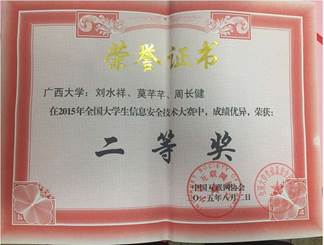 荣誉证书
广西大学：刘水祥、莫芊芊、周长健
在2015年全国大学生信息安全技术大赛中，成绩优异，荣获：
二等奖
中国互联网协会
二〇一五年八月二日